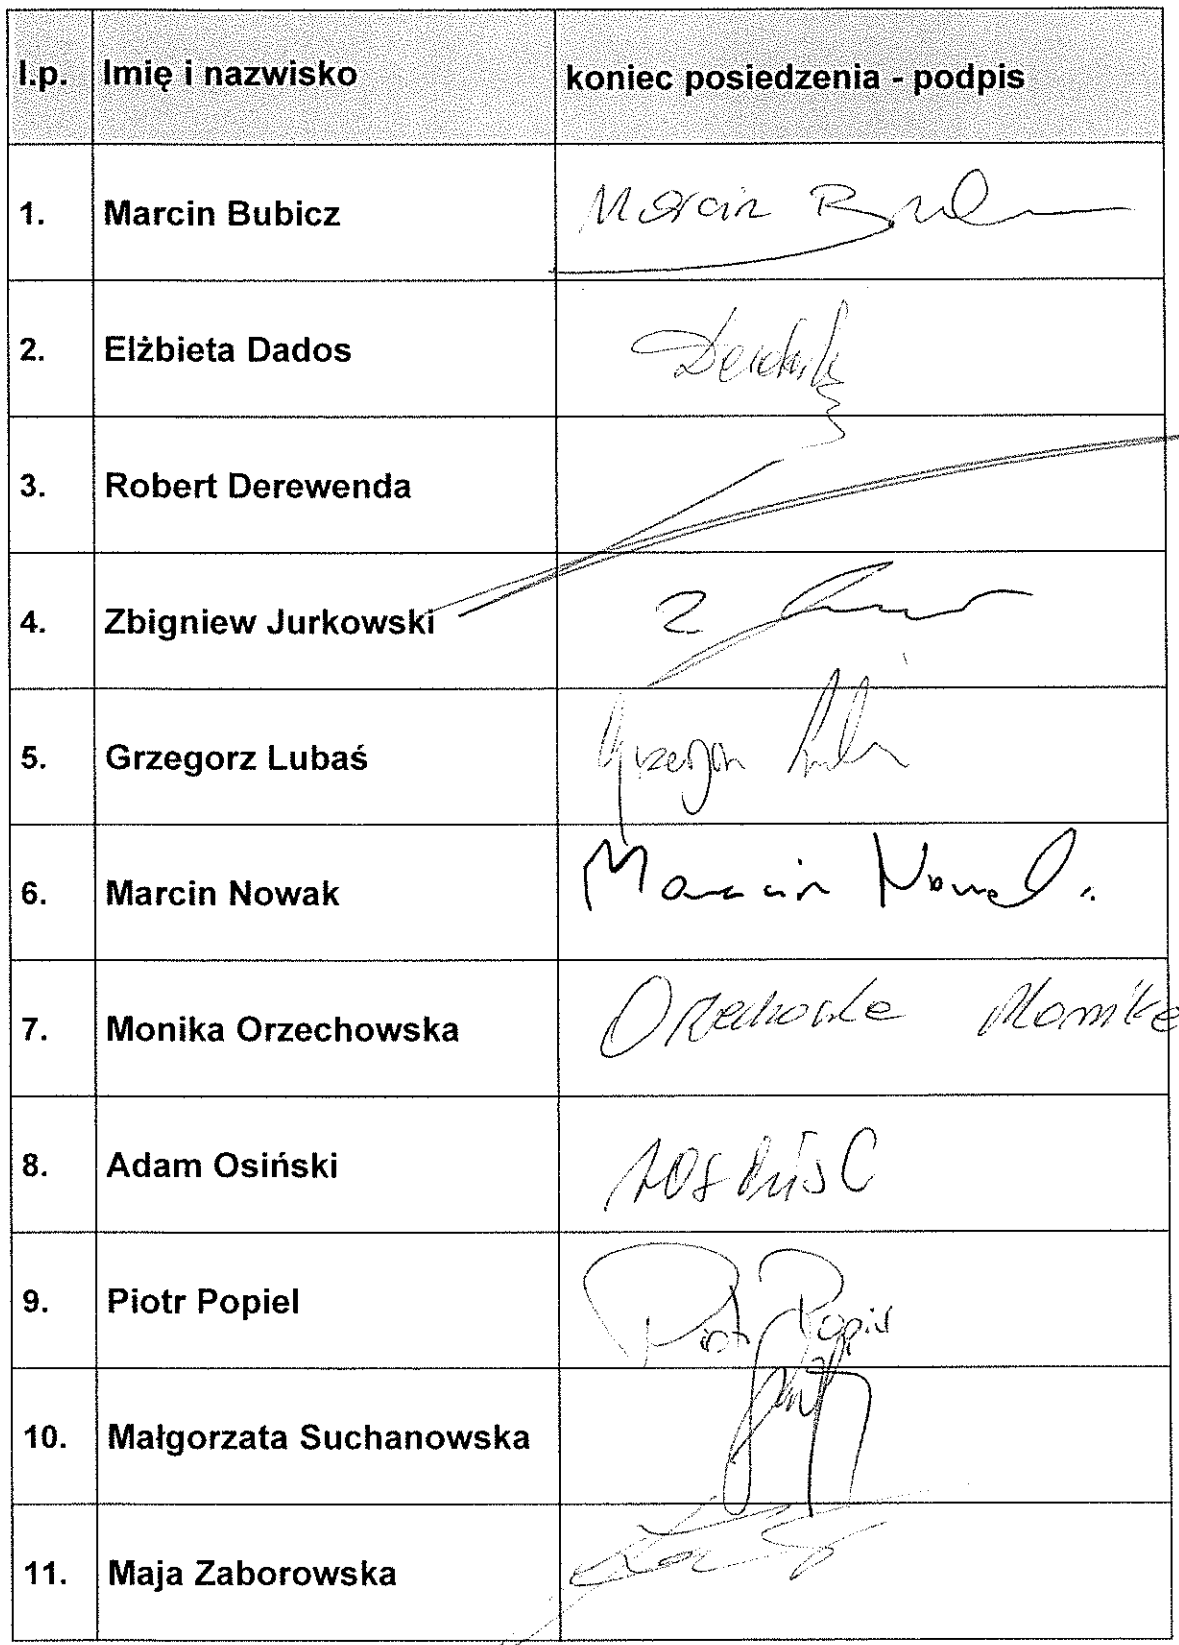 l.p. Imię i nazwisko koniec posiedzenia - podpis
1. Marcin Bubicz Marcin
2. Elżbieta Dados
3. Robert Derewenda
4. Zbigniew Jurkowski Z
5. Grzegorz Lubaś Grzegorz
6. Marcin Nowak Marcin Nowak
7. Monika Orzechowska Orzechowska Monika
8. Adam Osiński
9. Piotr Popiel Piotr Popiel
10. Małgorzata Suchanowska
11. Maja Zaborowska